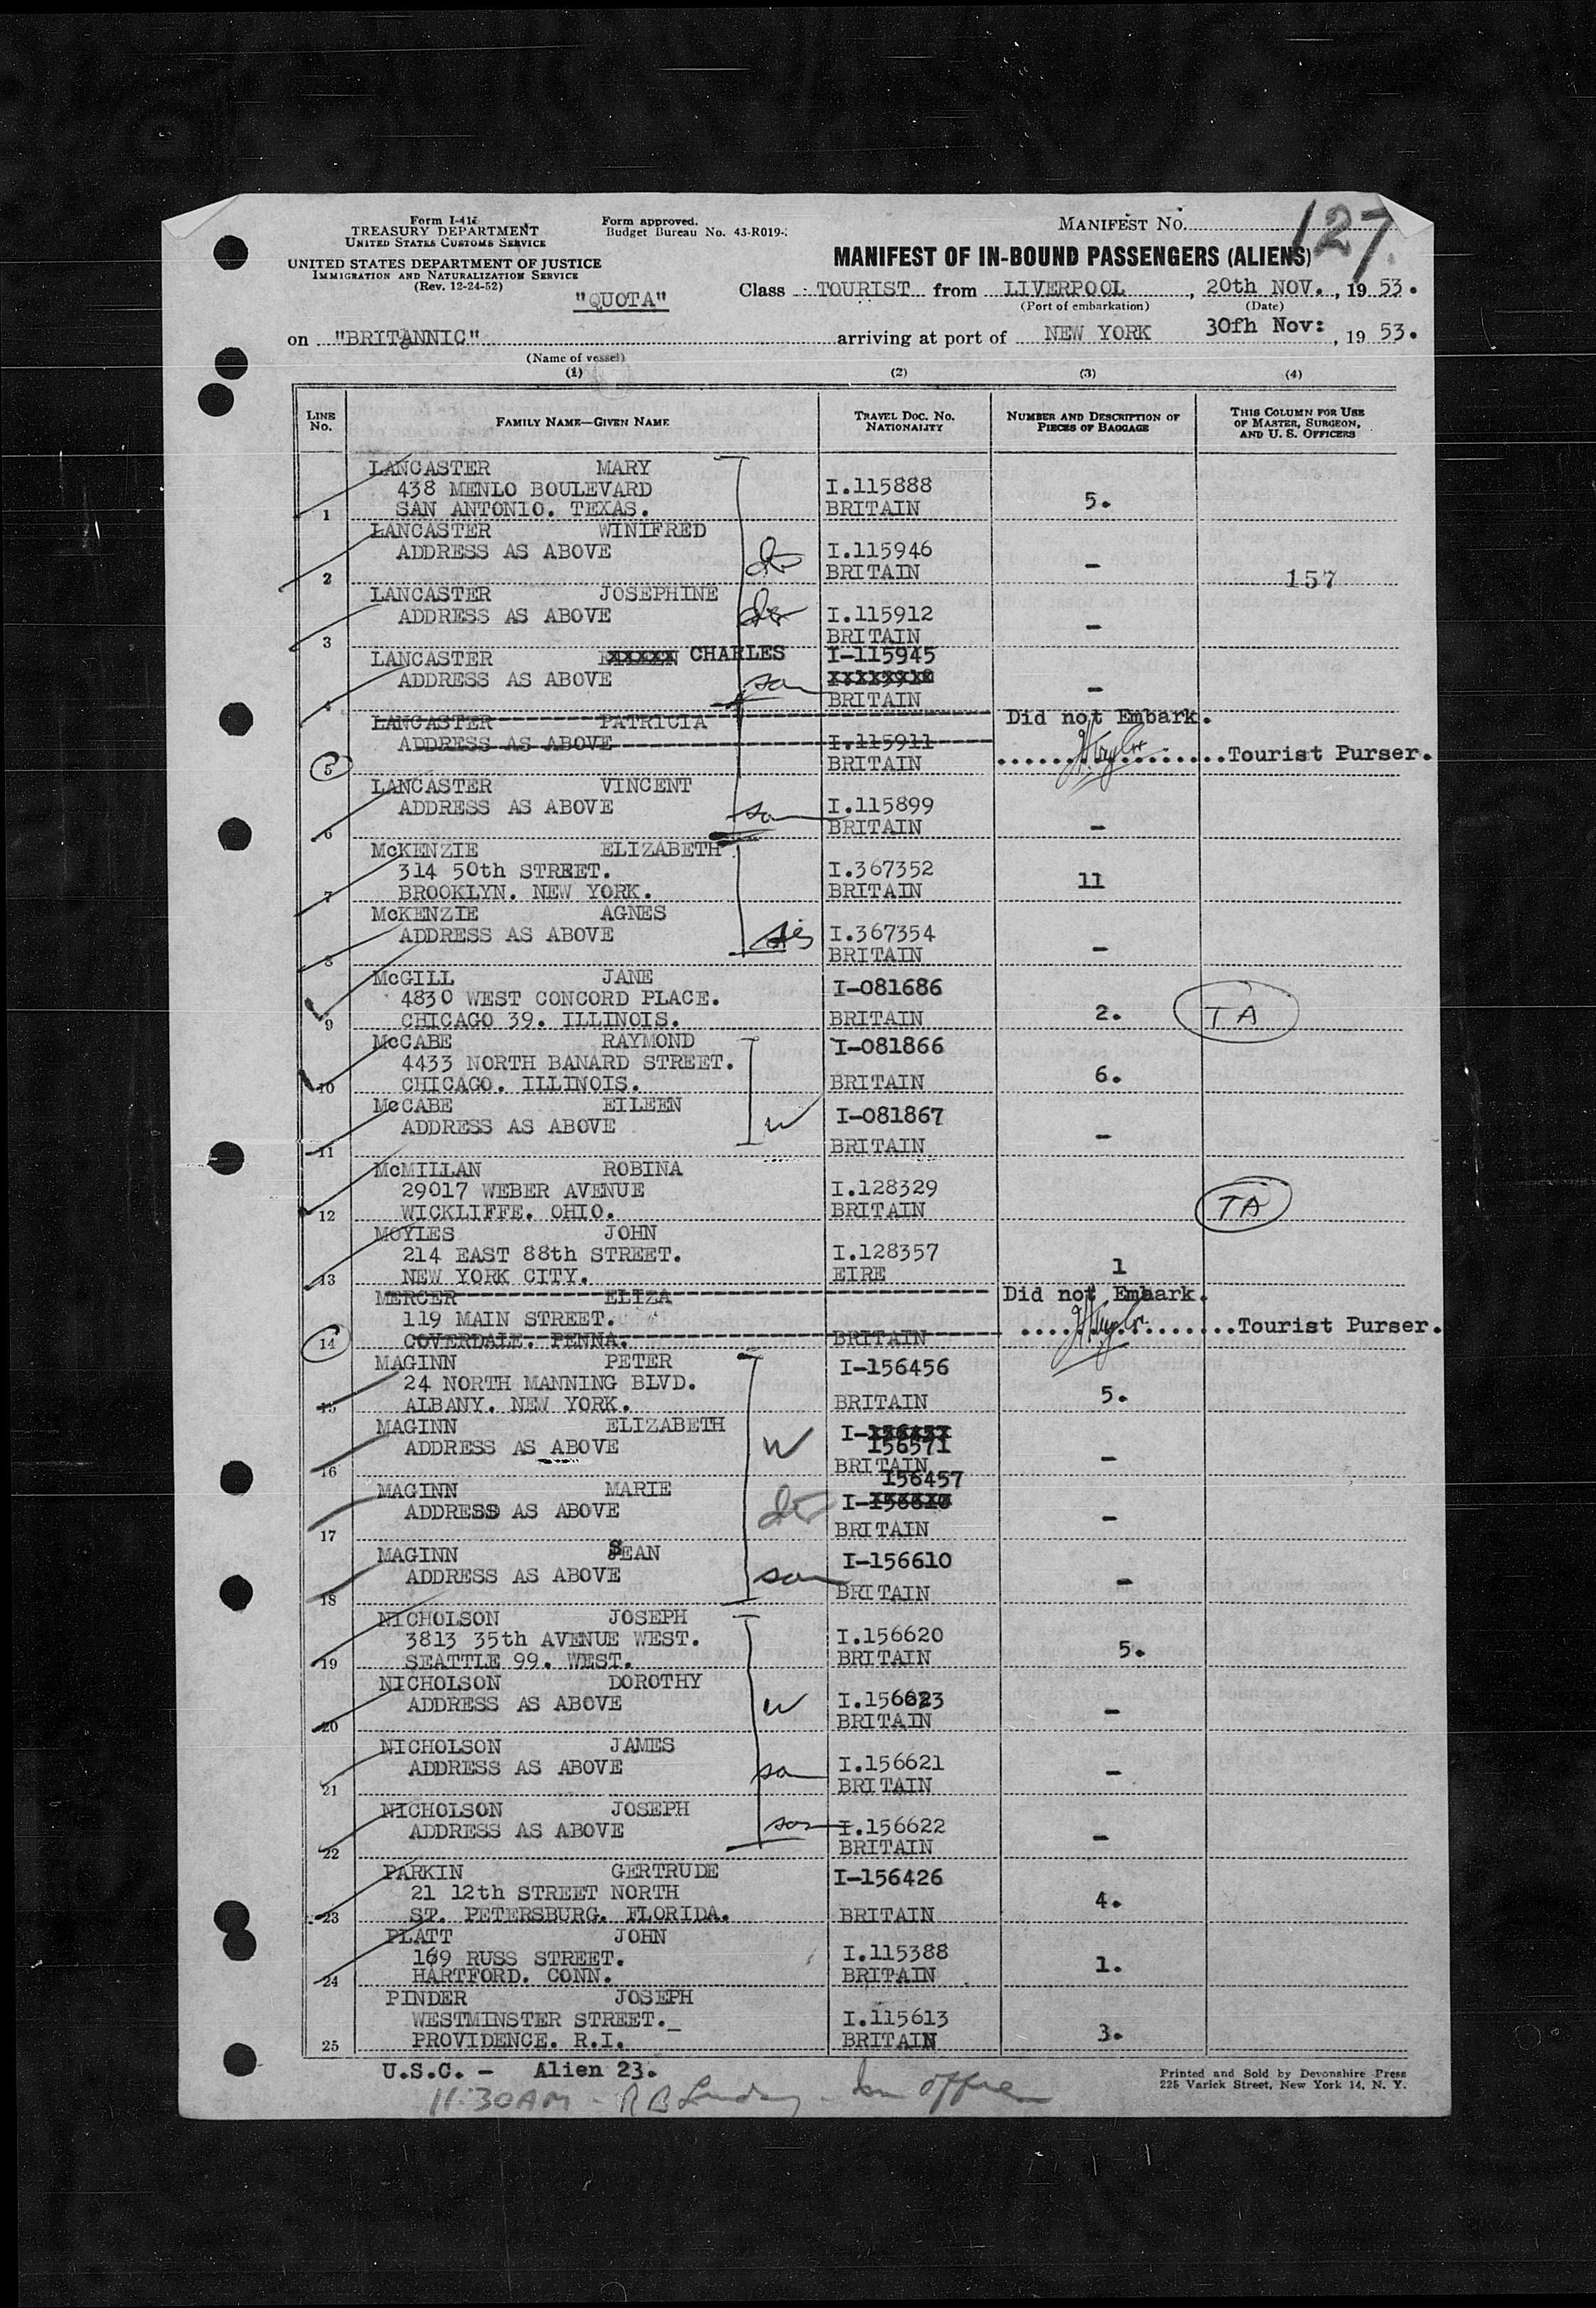 Form I-41
TREASURY DEPARTMENT
UNITED STATES CUSTOMS SERVICE
Form approved.
Budget Bureau No. 43-R019-
MANIFEST No. 127
UNITED STATES DEPARTMENT OF JUSTICE
IMMIGRATION AND NATURALIZATION SERVICE
(Rev. 12-24-52)
MANIFEST OF IN-BOUND PASSENGERS (ALIENS)
"QUOTA"
Class TOURIST from LIVERPOOL, 20th NOV., 1953.
(Port of embarkation) (Date)
on "BRITANNIC" arriving at port of NEW YORK 30fh Nov: , 1953.
(Name of vessel)
(1) (2) (3) (4)
LINE No. FAMILY NAME—GIVEN NAME TRAVEL DOC. NO. NATIONALITY NUMBER AND DESCRIPTION OF PIECES OF BAGGAGE THIS COLUMN FOR USE OF MASTER, SURGEON, AND U. S. OFFICERS
LANCASTER MARY
438 MENLO BOULEVARD I.115888
1 SAN ANTONIO. TEXAS. BRITAIN 5.
LANCASTER WINIFRED
ADDRESS AS ABOVE I.115946
2 BRITAIN – 157
LANCASTER JOSEPHINE
ADDRESS AS ABOVE I.115912
3 BRITAIN –
LANCASTER CHARLES I-115945
ADDRESS AS ABOVE son
4 BRITAIN –
LANCASTER PATRICIA Did not Embark.
ADDRESS AS ABOVE I.115911
5 BRITAIN Tourist Purser.
LANCASTER VINCENT
ADDRESS AS ABOVE son I.115899
6 BRITAIN –
McKENZIE ELIZABETH
314 50th STREET. I.367352
7 BROOKLYN. NEW YORK. BRITAIN 11
McKENZIE AGNES
ADDRESS AS ABOVE sis I.367354
8 BRITAIN –
McGILL JANE I-081686
4830 WEST CONCORD PLACE.
9 CHICAGO 39. ILLINOIS. BRITAIN 2. TA
McCABE RAYMOND I-081866
4433 NORTH BANARD STREET.
10 CHICAGO. ILLINOIS. BRITAIN 6.
McCABE EILEEN I-081867
ADDRESS AS ABOVE w
11 BRITAIN –
McMILLAN ROBINA
29017 WEBER AVENUE I.128329
12 WICKLIFFE. OHIO. BRITAIN TA
MOYLES JOHN
214 EAST 88th STREET. I.128357
13 NEW YORK CITY. EIRE 1
MERCER ELIZA Did not Embark.
119 MAIN STREET.
14 COVERDALE. PENNA. BRITAIN Tourist Purser.
MAGINN PETER I-156456
24 NORTH MANNING BLVD.
15 ALBANY. NEW YORK. BRITAIN 5.
MAGINN ELIZABETH I-
ADDRESS AS ABOVE w 156571
16 BRITAIN –
MAGINN MARIE 156457
ADDRESS AS ABOVE I-
17 BRITAIN –
MAGINN SEAN I-156610
ADDRESS AS ABOVE son
18 BRITAIN –
NICHOLSON JOSEPH
3813 35th AVENUE WEST. I.156620
19 SEATTLE 99. WEST. BRITAIN 5.
NICHOLSON DOROTHY
ADDRESS AS ABOVE w I.156623
20 BRITAIN –
NICHOLSON JAMES
ADDRESS AS ABOVE son I.156621
21 BRITAIN –
NICHOLSON JOSEPH
ADDRESS AS ABOVE son I.156622
22 BRITAIN –
PARKIN GERTRUDE I-156426
21 12th STREET NORTH
23 ST. PETERSBURG. FLORIDA. BRITAIN 4.
PLATT JOHN
169 RUSS STREET. I.115388
24 HARTFORD. CONN. BRITAIN 1.
PINDER JOSEPH
WESTMINSTER STREET. I.115613
25 PROVIDENCE. R.I. BRITAIN 3.
U.S.C. – Alien 23.
Printed and Sold by Devonshire Press
225 Varick Street, New York 14, N. Y.
11:30AM